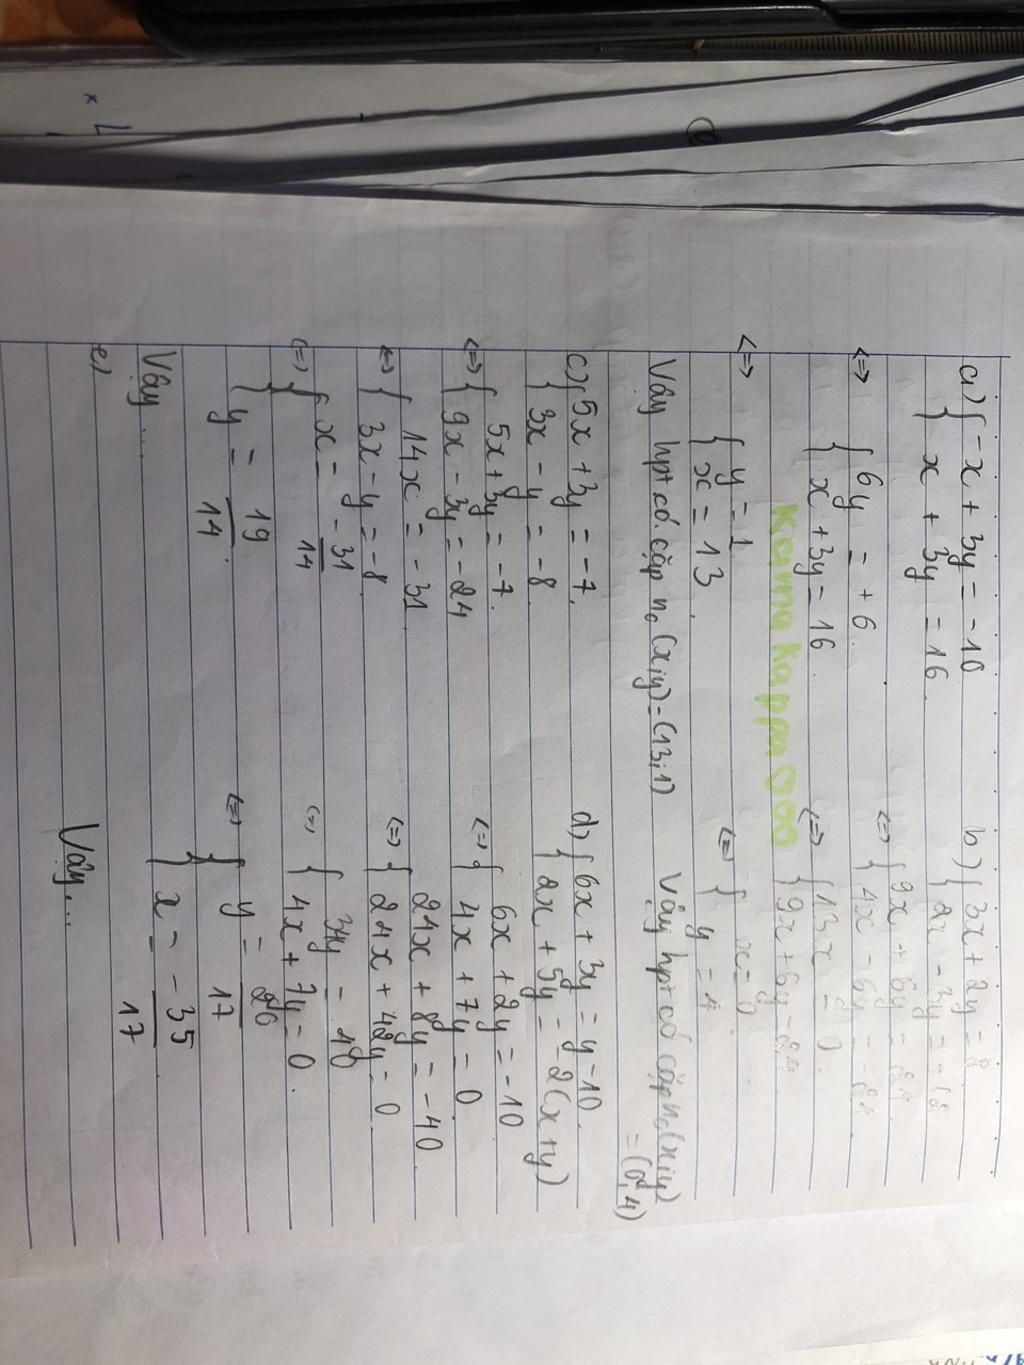 a) { -x + 3y = -10
x + 3y = 16
<=> { 6y = +6
x + 3y = 16
<=> { y = 1
x = 13
Vậy hpt có cặp n₀ (x;y) = (13;1)
b) { 3x + 2y = 8
2x - 3y = -12
<=> { 9x + 6y = 24
4x - 6y = -24
<=> { 13x = 0
9x + 6y = 24
<=> { x = 0
y = 4
Vậy hpt có cặp n₀ (x;y)
= (0;4)
Kannakappa900
c) { 5x + 3y = -7
3x - y = -8
<=> { 5x + 3y = -7
9x - 3y = -24
<=> { 14x = -31
3x - y = -8
<=> { x = -31/14
y = 19/14
Vậy ...
e)
d) { 6x + 3y = y - 10
2x + 5y = -2(x+y)
<=> { 6x + 2y = -10
4x + 7y = 0
<=> { 24x + 8y = -40
24x + 42y = 0
<=> { 34y = 40
4x + 7y = 0
<=> { y = 20/17
x = -35/17
Vậy ...